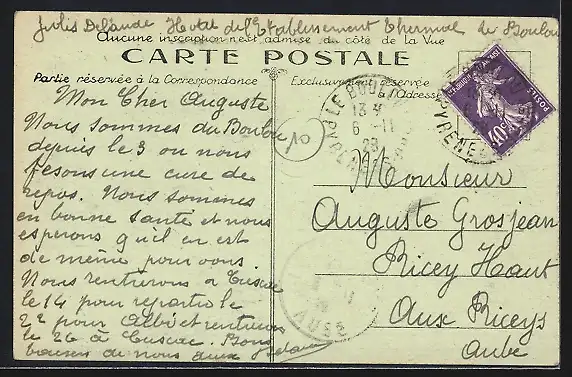 Julis Delaude Hotel de l'Etablissement Thermal Le Boulou
Aucune inscription n'est admise du côté de la Vue
CARTE POSTALE
Partie réservée à la Correspondance
Exclusivement réservée
à l'Adresse
Mon Cher Auguste
Nous sommes du Boulou
depuis le 3 ou nous
fesons une cure de
repos. Nous sommes
en bonne santé et nous
esperons qu'il en est
de même pour vous.
Nous rentrerons a
le 14 pour repartir le
22 pour Albi et rentrerons
le 26 à Bons
baisers de nous deux
LE BOULOU
13
6 - 11
28
PYRENEES
POSTES
40
Monsieur
Auguste Grosjean
Ricey Haut
Aux Riceys
Aube
AUBE